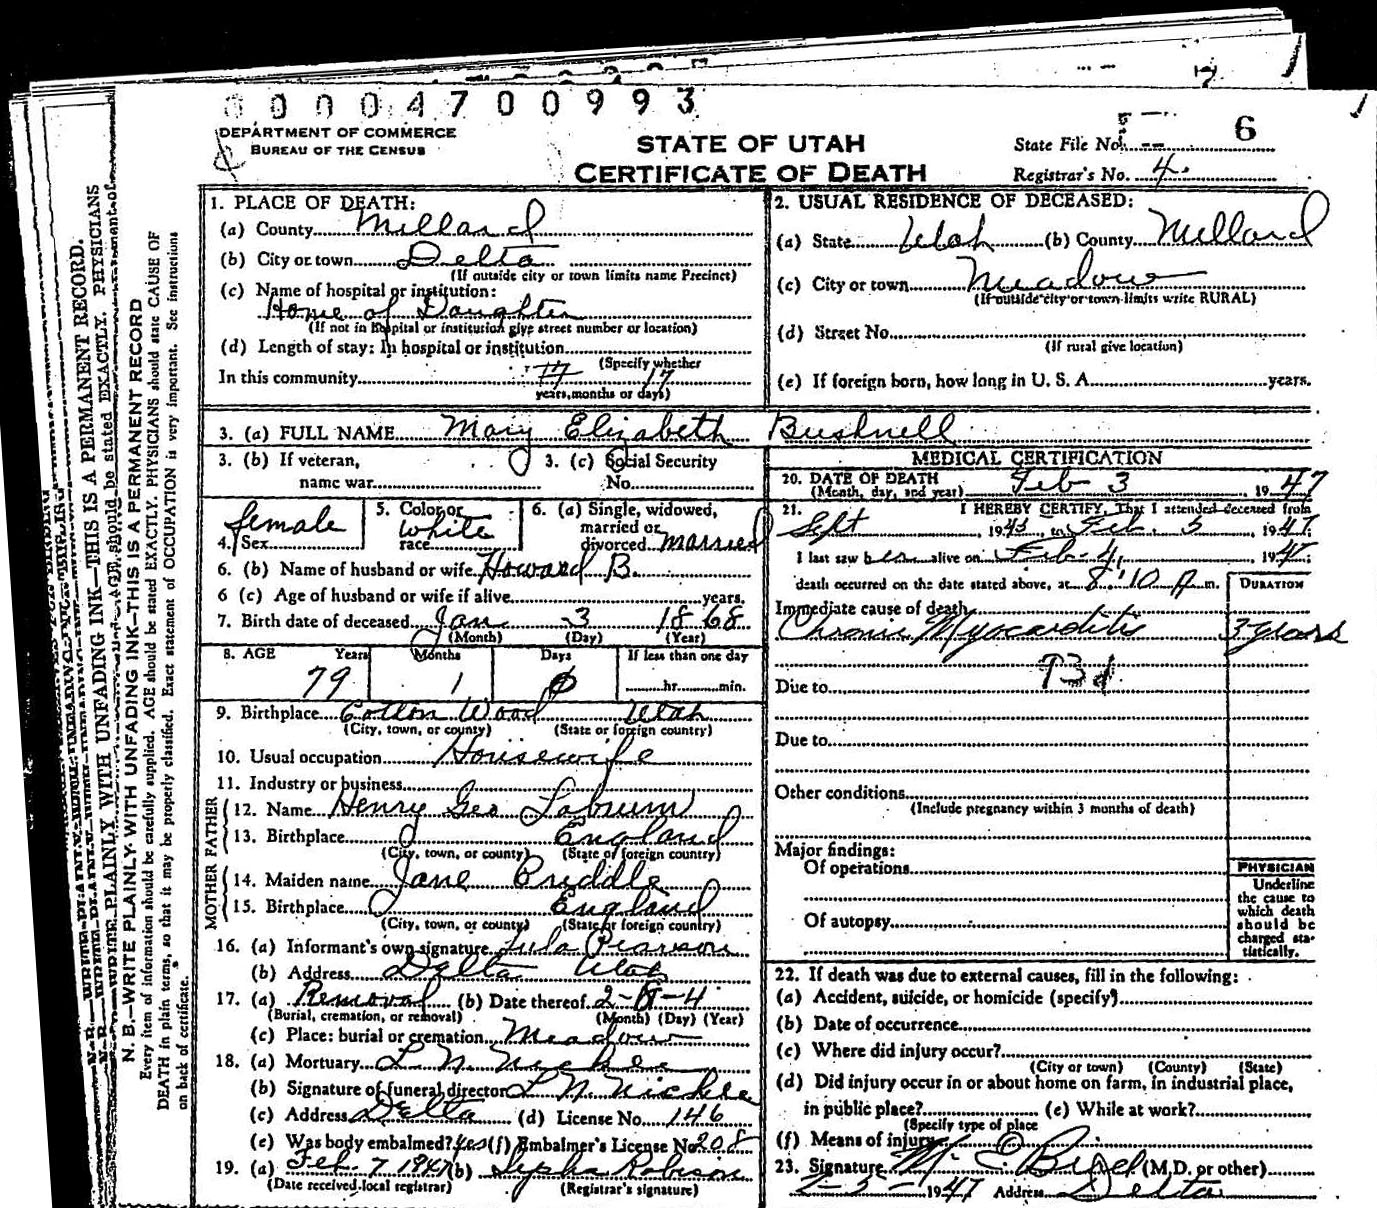 00004700993
DEPARTMENT OF COMMERCE
BUREAU OF THE CENSUS
STATE OF UTAH
CERTIFICATE OF DEATH
State File No. 6
Registrar's No. 4.
N. B.—WRITE PLAINLY WITH UNFADING INK—THIS IS A PERMANENT RECORD
Every item of information should be carefully supplied. AGE should be stated EXACTLY. PHYSICIANS should state CAUSE OF
DEATH in plain terms, so that it may be properly classified. Exact statement of OCCUPATION is very important. See instructions
on back of certificate.
1. PLACE OF DEATH:
(a) County Millard
(b) City or town Delta
(If outside city or town limits name Precinct)
(c) Name of hospital or institution:
Home of Daughter
(If not in hospital or institution give street number or location)
(d) Length of stay: In hospital or institution
(Specify whether
In this community 17
years, months or days)
2. USUAL RESIDENCE OF DECEASED:
(a) State Utah (b) County Millard
(c) City or town Meadow
(If outside city or town limits write RURAL)
(d) Street No.
(If rural give location)
(e) If foreign born, how long in U. S. A. years.
3. (a) FULL NAME Mary Elizabeth Bushnell
3. (b) If veteran,
name war
3. (c) Social Security
No.
4. Sex female
5. Color or
race white
6. (a) Single, widowed,
married or
divorced married
6. (b) Name of husband or wife Howard B.
6 (c) Age of husband or wife if alive years.
7. Birth date of deceased Jan 3 1868
(Month) (Day) (Year)
8. AGE Years Months Days If less than one day
79 1 0 hr. min.
9. Birthplace Cotton Wood Utah
(City, town, or county) (State or foreign country)
10. Usual occupation Housewife
11. Industry or business
FATHER
12. Name Henry Geo Labrum
13. Birthplace England
(City, town, or county) (State or foreign country)
MOTHER
14. Maiden name Jane Priddle
15. Birthplace England
(City, town, or county) (State or foreign country)
16. (a) Informant's own signature Lula Pearson
(b) Address Delta Utah
17. (a) Removal (b) Date thereof 2- -4
(Burial, cremation, or removal) (Month) (Day) (Year)
(c) Place: burial or cremation Meadow
18. (a) Mortuary L N Nickle
(b) Signature of funeral director L N Nickle
(c) Address Delta (d) License No. 146
(e) Was body embalmed? Yes (f) Embalmer's License No 208
19. (a) Feb. 7 1947 (b) Robison
(Date received local registrar) (Registrar's signature)
MEDICAL CERTIFICATION
20. DATE OF DEATH
(Month, day, and year) Feb 3, 1947
21. I HEREBY CERTIFY, That I attended deceased from
Sept 1943, to Feb. 3 1947.
I last saw her alive on Feb-4, 1947.
death occurred on the date stated above, at 8:10 P m.
DURATION
Immediate cause of death
Chronic Myocarditis 3 years
93d
Due to
Due to
Other conditions
(Include pregnancy within 3 months of death)
Major findings:
Of operations
Of autopsy
PHYSICIAN
Underline
the cause to
which death
should be
charged sta-
tistically.
22. If death was due to external causes, fill in the following:
(a) Accident, suicide, or homicide (specify)
(b) Date of occurrence
(c) Where did injury occur?
(City or town) (County) (State)
(d) Did injury occur in or about home on farm, in industrial place,
in public place? (e) While at work?
(Specify type of place
(f) Means of injury
23. Signature M. E. Bird (M.D. or other)
2-5-1947 Address Delta